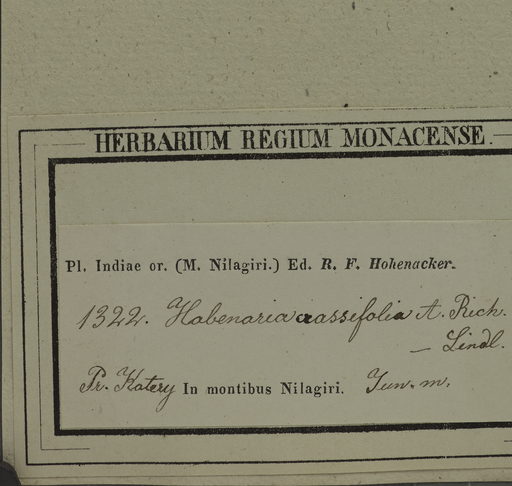 HERBARIUM REGIUM MONACENSE.
Pl. Indiae or. (M. Nilagiri.) Ed. R. F. Hohenacker.
1322. Habenaria crassifolia A. Rich.
— Lindl.
Pr. Katery In montibus Nilagiri. Jun. m.